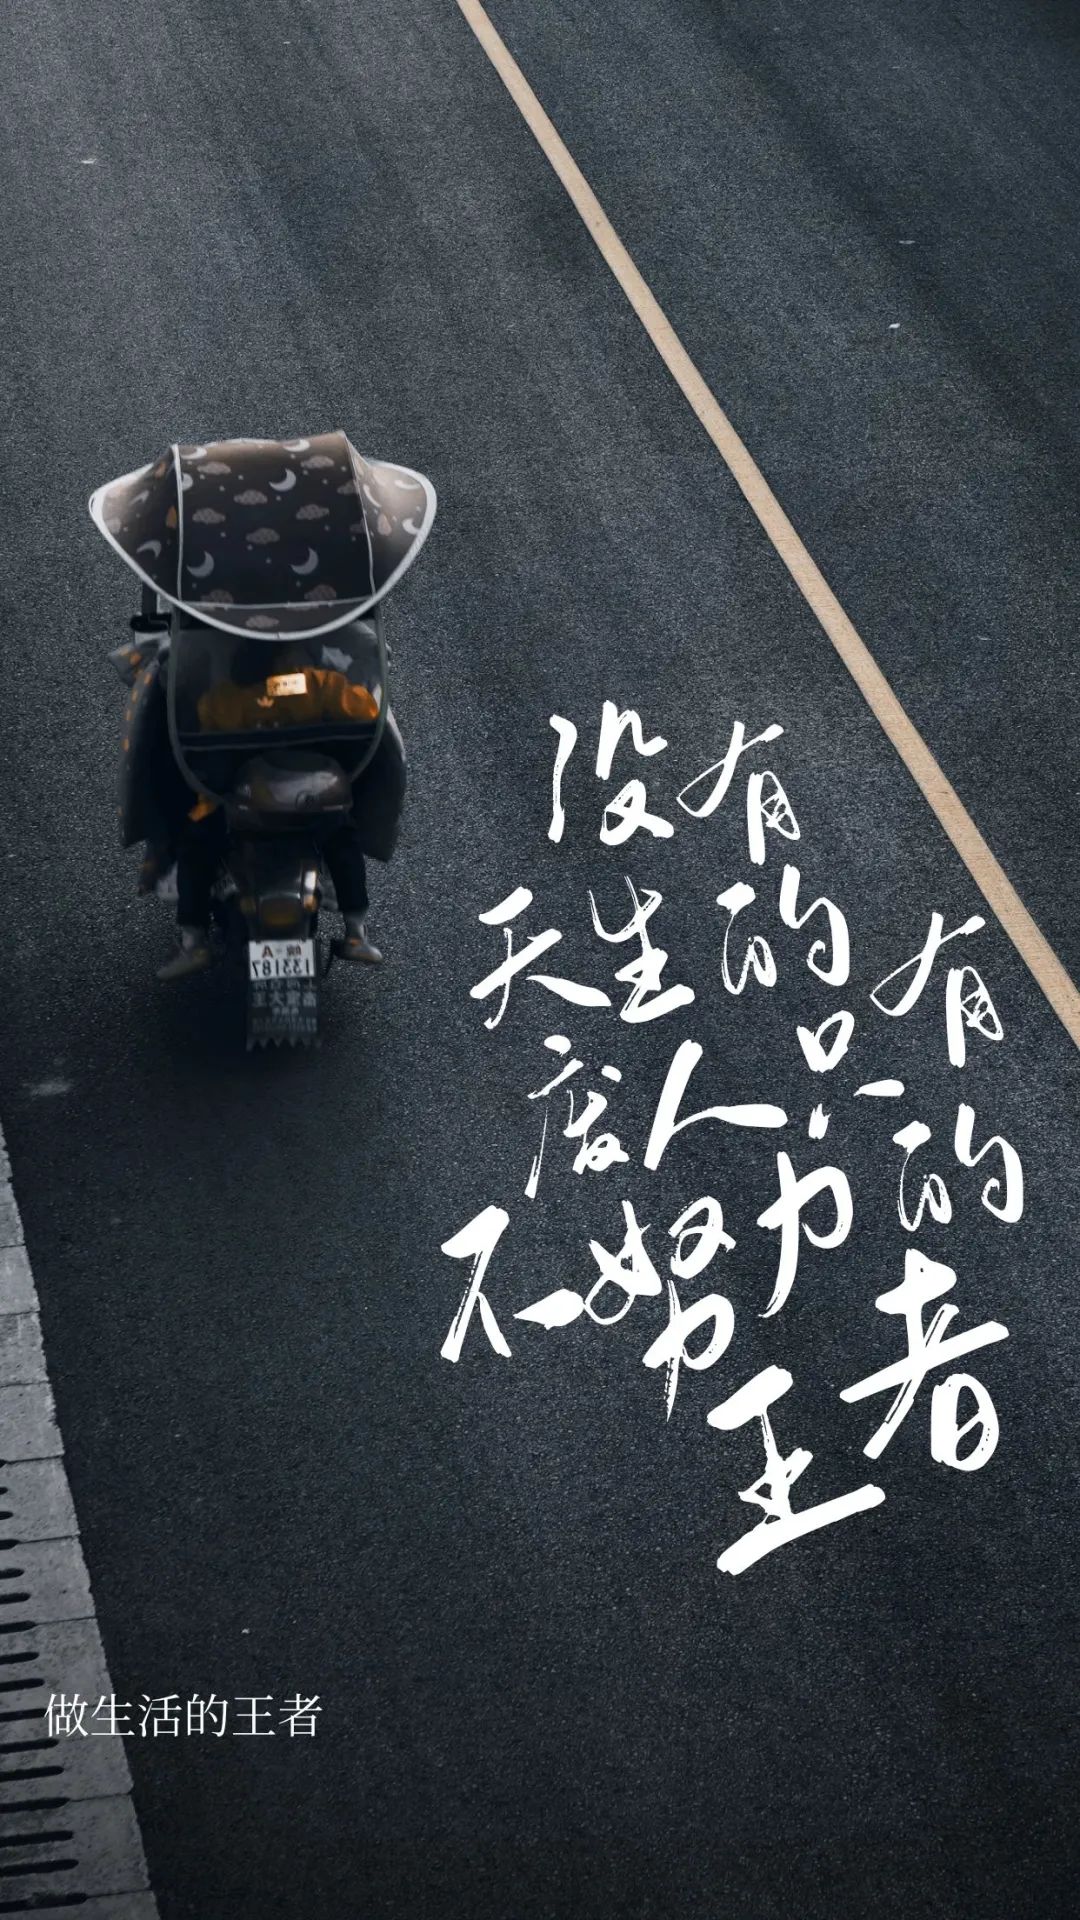 没有
天生的
废人只有
不努力的
王者
做生活的王者